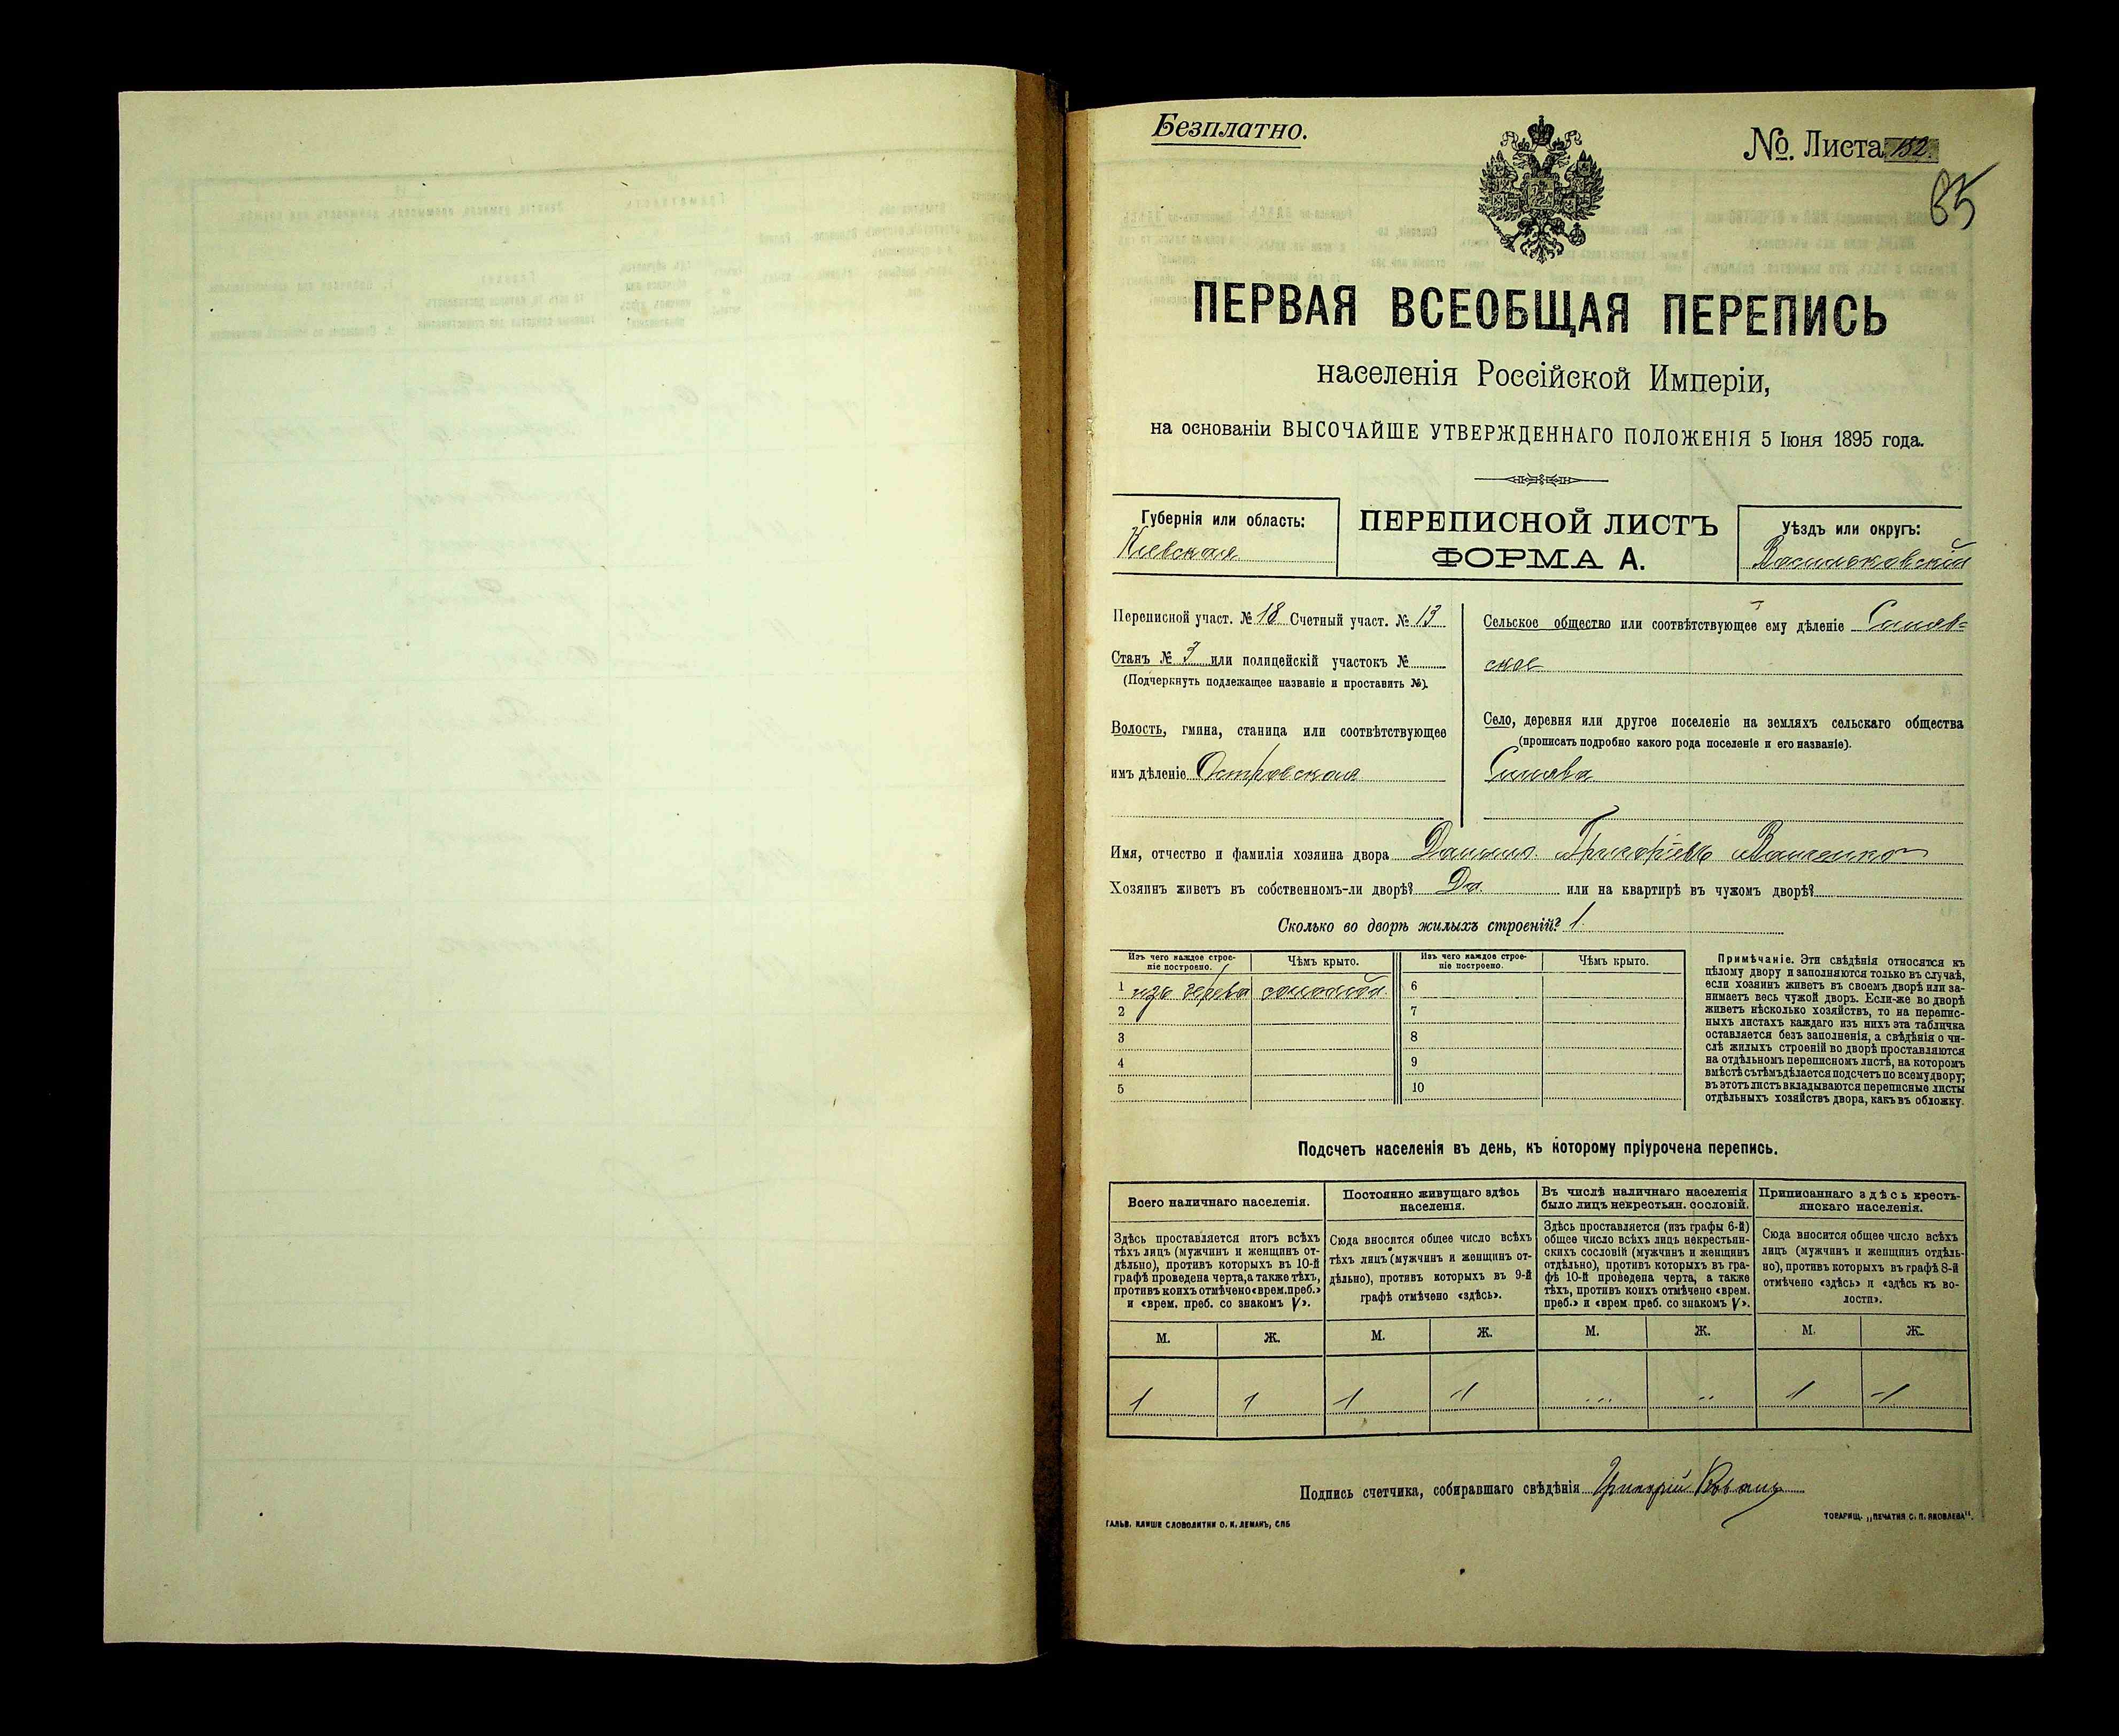 Безплатно.
№. Листа 152.
85
ПЕРВАЯ ВСЕОБЩАЯ ПЕРЕПИСЬ
населенія Россійской Имперіи,
на основаніи ВЫСОЧАЙШЕ УТВЕРЖДЕННАГО ПОЛОЖЕНІЯ 5 Іюня 1895 года.
Губернія или область:
Кіевская
ПЕРЕПИСНОЙ ЛИСТЪ
ФОРМА А.
Уѣздъ или округъ:
Васильковскій
Переписной участ. № 18 Счетный участ. № 13
Станъ № 3 или полицейскій участокъ №
(Подчеркнуть подлежащее названіе и проставить №).
Волость, гмина, станица или соотвѣтствующее
имъ дѣленіе Островская
Сельское общество или соотвѣтствующее ему дѣленіе Синяв=
ское
Село, деревня или другое поселеніе на земляхъ сельскаго общества
(прописать подробно какого рода поселеніе и его названіе).
Синява
Имя, отчество и фамилія хозяина двора Данило Григоріевъ Ващенко
Хозяинъ живетъ въ собственномъ-ли дворѣ? Да или на квартирѣ въ чужомъ дворѣ?
Сколько во дворѣ жилыхъ строеній? 1.
Изъ чего каждое строе-
ніе построено.
Чѣмъ крыто.
Изъ чего каждое строе-
ніе построено.
Чѣмъ крыто.
1 изъ дерева соломой 6
2 7
3 8
4 9
5 10
Примѣчаніе. Эти свѣдѣнія относятся къ
цѣлому двору и заполняются только въ случаѣ,
если хозяинъ живетъ въ своемъ дворѣ или за-
нимаетъ весь чужой дворъ. Если-же во дворѣ
живетъ нѣсколько хозяйствъ, то на перепис-
ныхъ листахъ каждаго изъ нихъ эта табличка
оставляется безъ заполненія, а свѣдѣнія о чи-
слѣ жилыхъ строеній во дворѣ проставляются
на отдѣльномъ переписномъ листѣ, на которомъ
вмѣстѣ съ тѣмъ дѣлается подсчетъ по всему двору;
въ этотъ листъ вкладываются переписные листы
отдѣльныхъ хозяйствъ двора, какъ въ обложку.
Подсчетъ населенія въ день, къ которому пріурочена перепись.
Всего наличнаго населенія.
Здѣсь проставляется итогъ всѣхъ
тѣхъ лицъ (мужчинъ и женщинъ от-
дѣльно), противъ которыхъ въ 10-й
графѣ проведена черта, а также тѣхъ,
противъ коихъ отмѣчено «врем. преб.»
и «врем. преб. со знакомъ V».
Постоянно живущаго здѣсь
населенія.
Сюда вносится общее число всѣхъ
тѣхъ лицъ (мужчинъ и женщинъ от-
дѣльно), противъ которыхъ въ 9-й
графѣ отмѣчено «здѣсь».
Въ числѣ наличнаго населенія
было лицъ некрестьян. сословій.
Здѣсь проставляется (изъ графы 6-й)
общее число всѣхъ лицъ некрестьян-
скихъ сословій (мужчинъ и женщинъ
отдѣльно), противъ которыхъ въ гра-
фѣ 10-й проведена черта, а также
тѣхъ, противъ коихъ отмѣчено «врем.
преб.» и «врем. преб. со знакомъ V».
Приписаннаго здѣсь кресть-
янскаго населенія.
Сюда вносится общее число всѣхъ
лицъ (мужчинъ и женщинъ отдѣль-
но), противъ которыхъ въ графѣ 8-й
отмѣчено «здѣсь» и «здѣсь къ во-
лости».
М. Ж. М. Ж. М. Ж. М. Ж.
1 1 1 1 ... .. 1 1
Подпись счетчика, собиравшаго свѣдѣнія Григорій
ГАЛЬВ. КЛИШЕ СЛОВОЛИТНИ О. И. ЛЕМАНЪ, СПБ
ТОВАРИЩ. „ПЕЧАТНЯ С. П. ЯКОВЛЕВА".